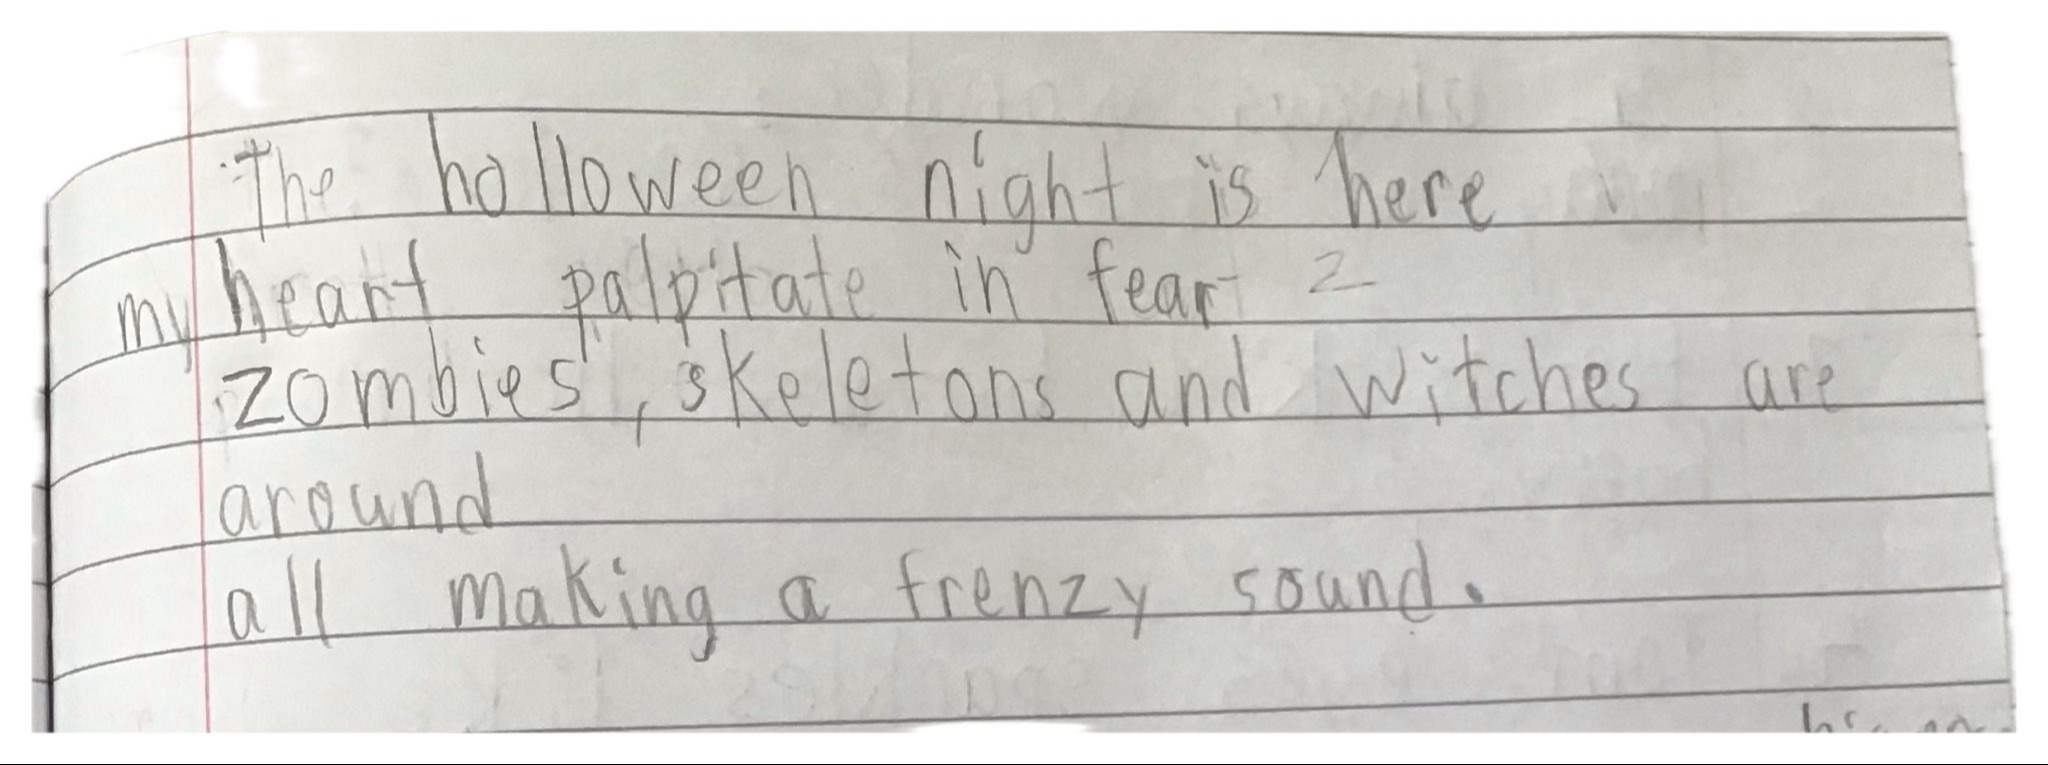 The holloween night is here
my heart palpitate in fear 2
zombies, skeletons and witches are
around
all making a frenzy sound.